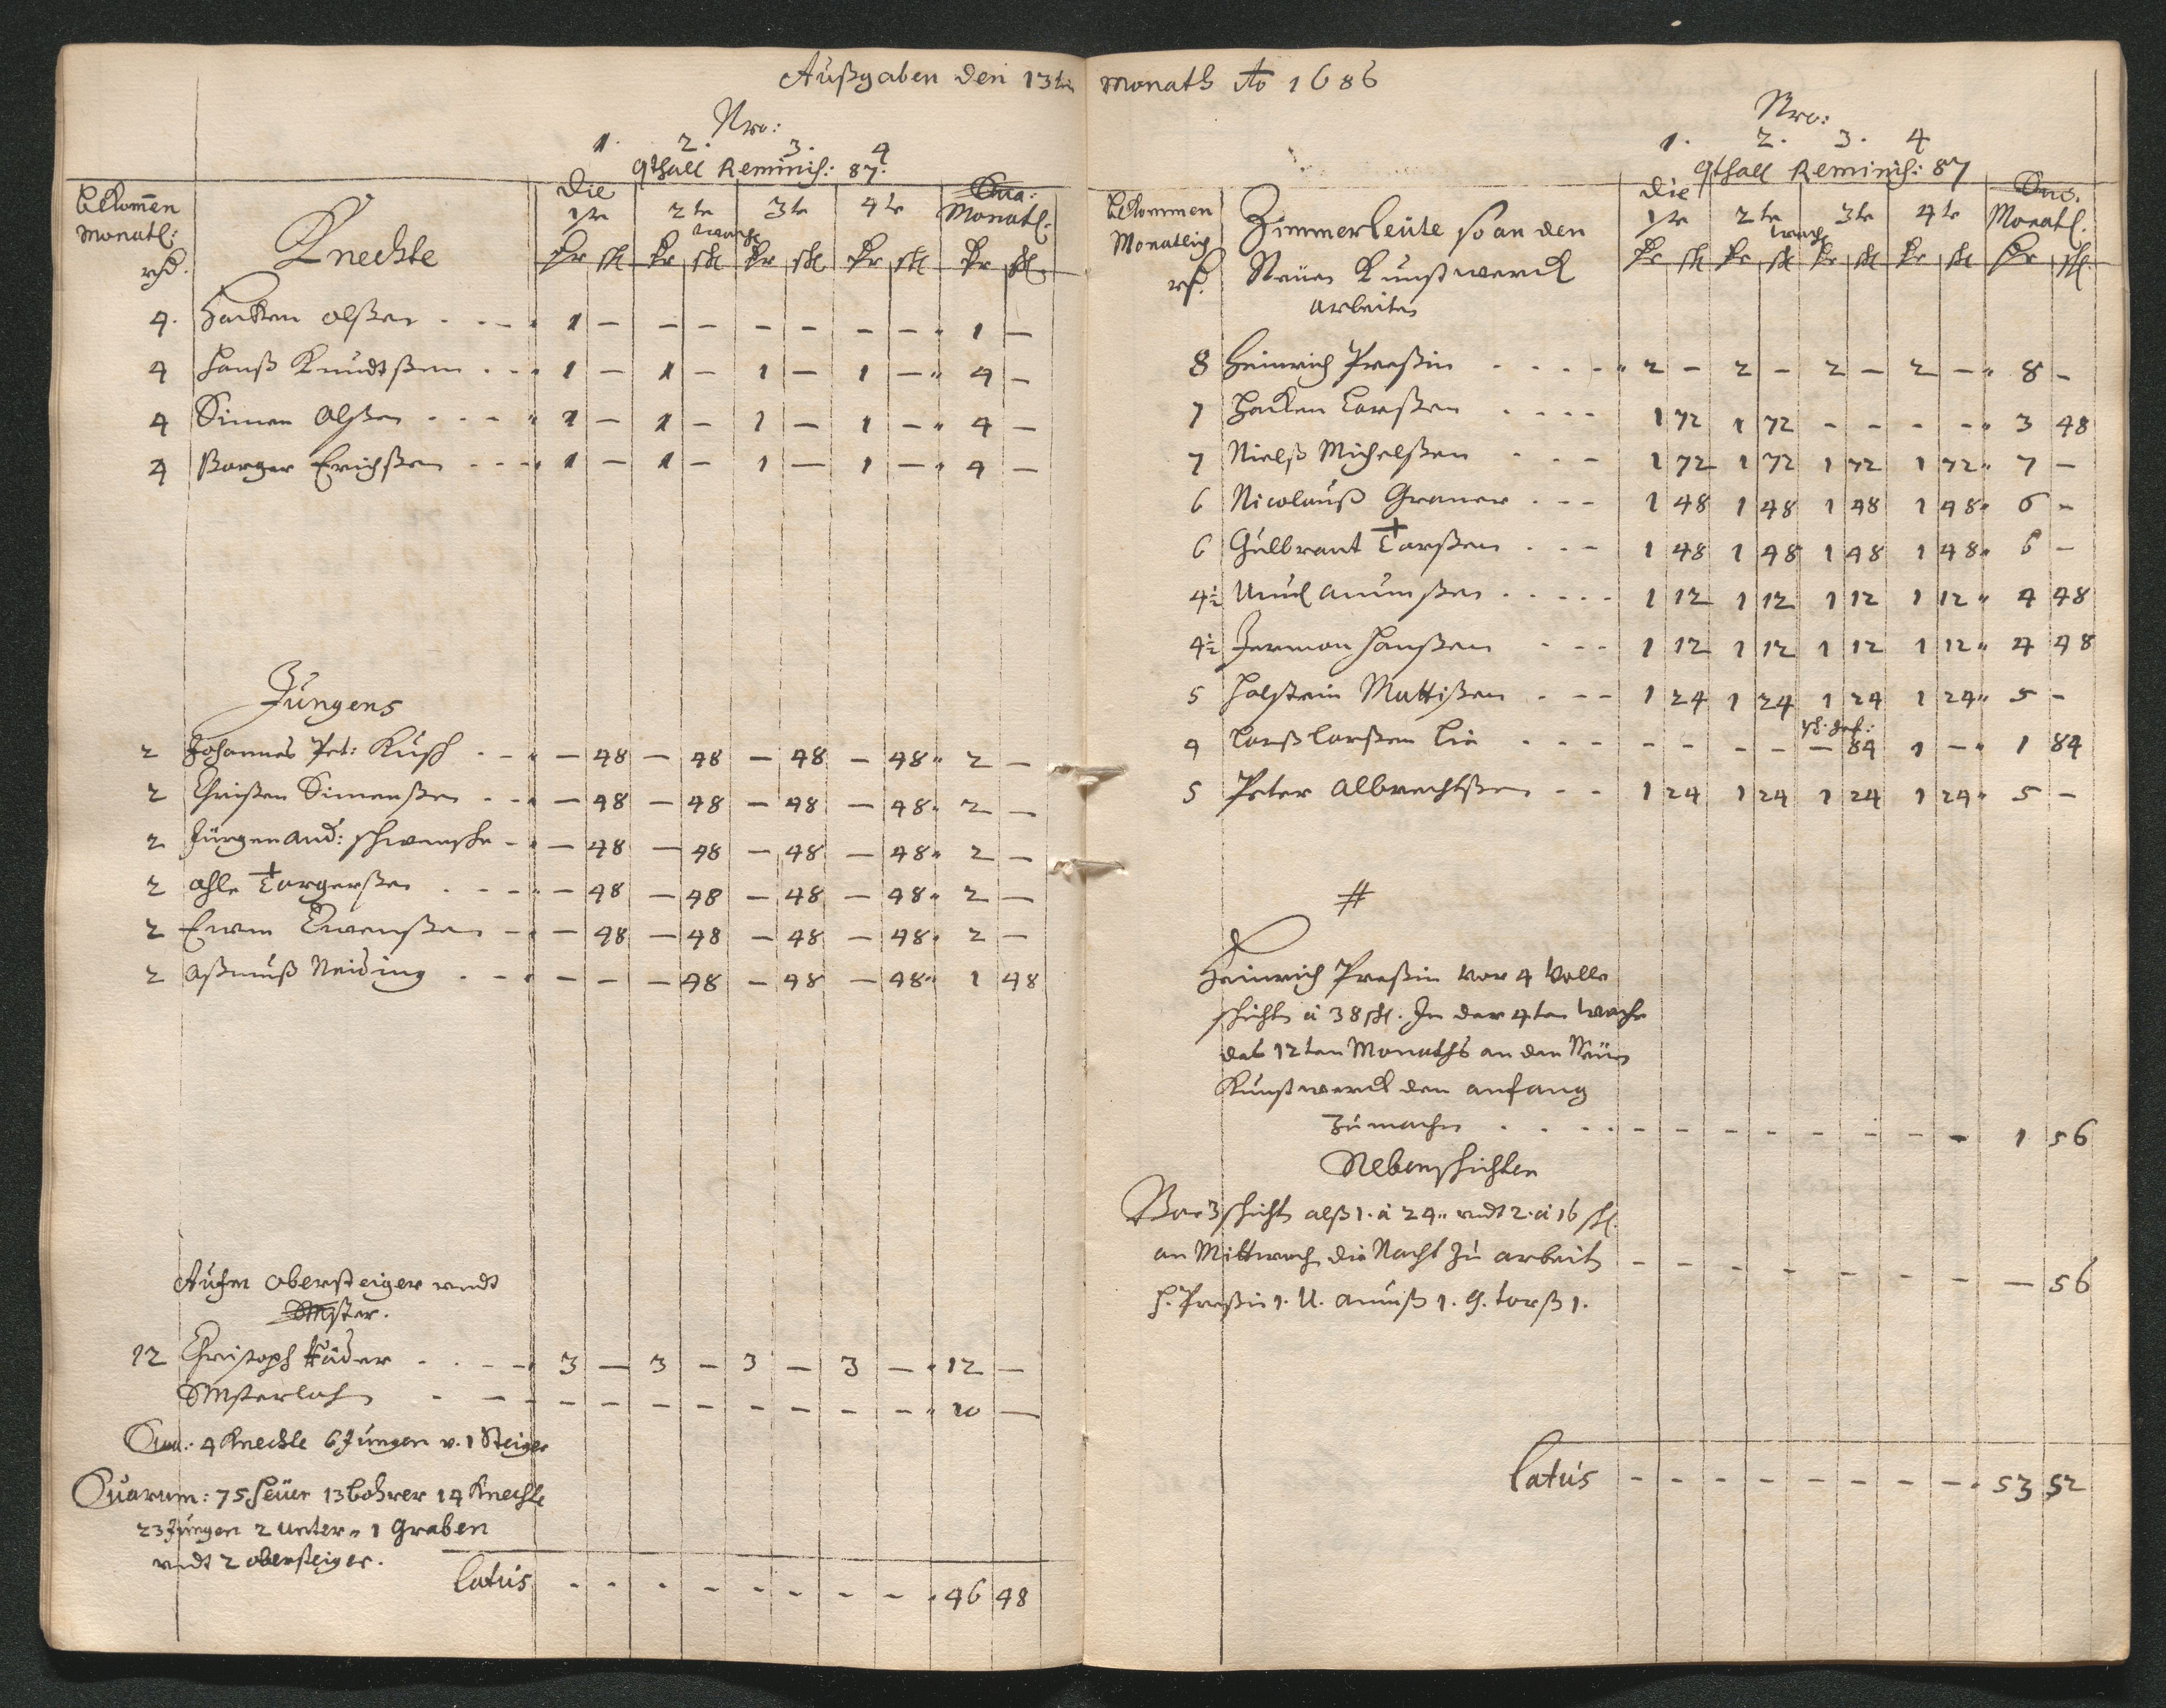 Außgaben den 13ten Monath Ao 1686
Nro:
1. 2. 3. 4
qthall Reminis: 87.
bekomen Monatl: rf.
Knechte
Die 1te 2te 3te 4te woche
Sma: Monatl:
Rr ſtl Rr ſtl Rr ſtl Rr ſtl Rr ſtl
4. Hacken Olßen . - - - 1 — — — — — — — 1 —
4 Hanß Knudtßen . - - 1 — 1 — 1 — 1 — 4 —
4 Simen Olßen - - - 1 — 1 — 1 — 1 — 4 —
4 Borger Erichßen - - - 1 — 1 — 1 — 1 — 4 —
Jungens
2 Johannes Pet: Kusch - - — 48 — 48 — 48 — 48 2 —
2 Christen Simenßen - - — 48 — 48 — 48 — 48 2 —
2 Jürgen And: Schwenske - — 48 — 48 — 48 — 48 2 —
2 Ohle Torgerßen - - - — 48 — 48 — 48 — 48 2 —
2 Ewen Ewenßen - — 48 — 48 — 48 — 48 2 —
2 Aßmuß Neiding - - - — — — 48 — 48 — 48 1 48
Obersteiger undt
12 Christoph - - - 3 — 3 — 3 — 3 — 12 —
- - - - - - - - - - 10 —
Sma: 4 Knechte 6 Jungen v. 1 Steiger
Suarum: 75 Heüer 13 bohrer 14 Knechte
23 Jungen 2 unter " 1 Graben
undt 2 obersteiger.
Latus - - - - - - - - 46 48
Nro:
1. 2. 3. 4
qthall Reminis: 87
bekommen Monatlich rf.
Zimmerleüte so an den
Neüen Kunstwerck
arbeiten
Die 1te 2te 3te 4te woche
Sma. Monatl.
Rr ſtl Rr ſtl Rr ſtl Rr ſtl Rr ſtl
8 Heinrich Preßin - - - - 2 — 2 — 2 — 2 — 8 —
7 Hacken Larßen - - - - 1 72 1 72 — — — — 3 48
7 Nielß Michelßen - - - 1 72 1 72 1 72 1 72 7 —
6 Nicolauß Gramer - - - 1 48 1 48 1 48 1 48 6 —
6 Gulbrant Torßen - - - 1 48 1 48 1 48 1 48 6 —
4½ Amunßen - - - - 1 12 1 12 1 12 1 12 4 48
4½ Jermon Hanßen - - - 1 12 1 12 1 12 1 12 4 48
5 Holstein Mattißen - - - 1 24 1 24 1 24 1 24 5 —
4 Larß Larßen Lie - - - — — — — — 84 1 — 1 84
5 Peter Albrechtßen - - 1 24 1 24 1 24 1 24 5 —
#
Heinrich Preßin vor 4 volle
schichten à 38 ſtl. In der 4ten woche
des 12ten Monaths an den Neüen
Kunstwerck den anfang
zu machen - - - - - - - - - - 1 56
Nebenschichten
Vor 3 schichten alß 1. à 24 " undt 2. à 16 ſtl.
an Mittwoch die Nacht zu arbeiten - - - - - - - - — 56
H. Preßin 1. U. Amuß 1. G. Torß 1.
Latus - - - - - - - - 53 52